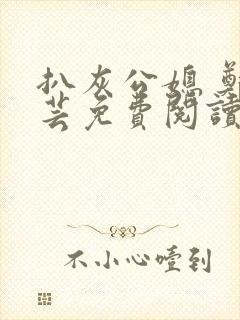 扒灰公媳
芸免費閱讀
不小心噎到